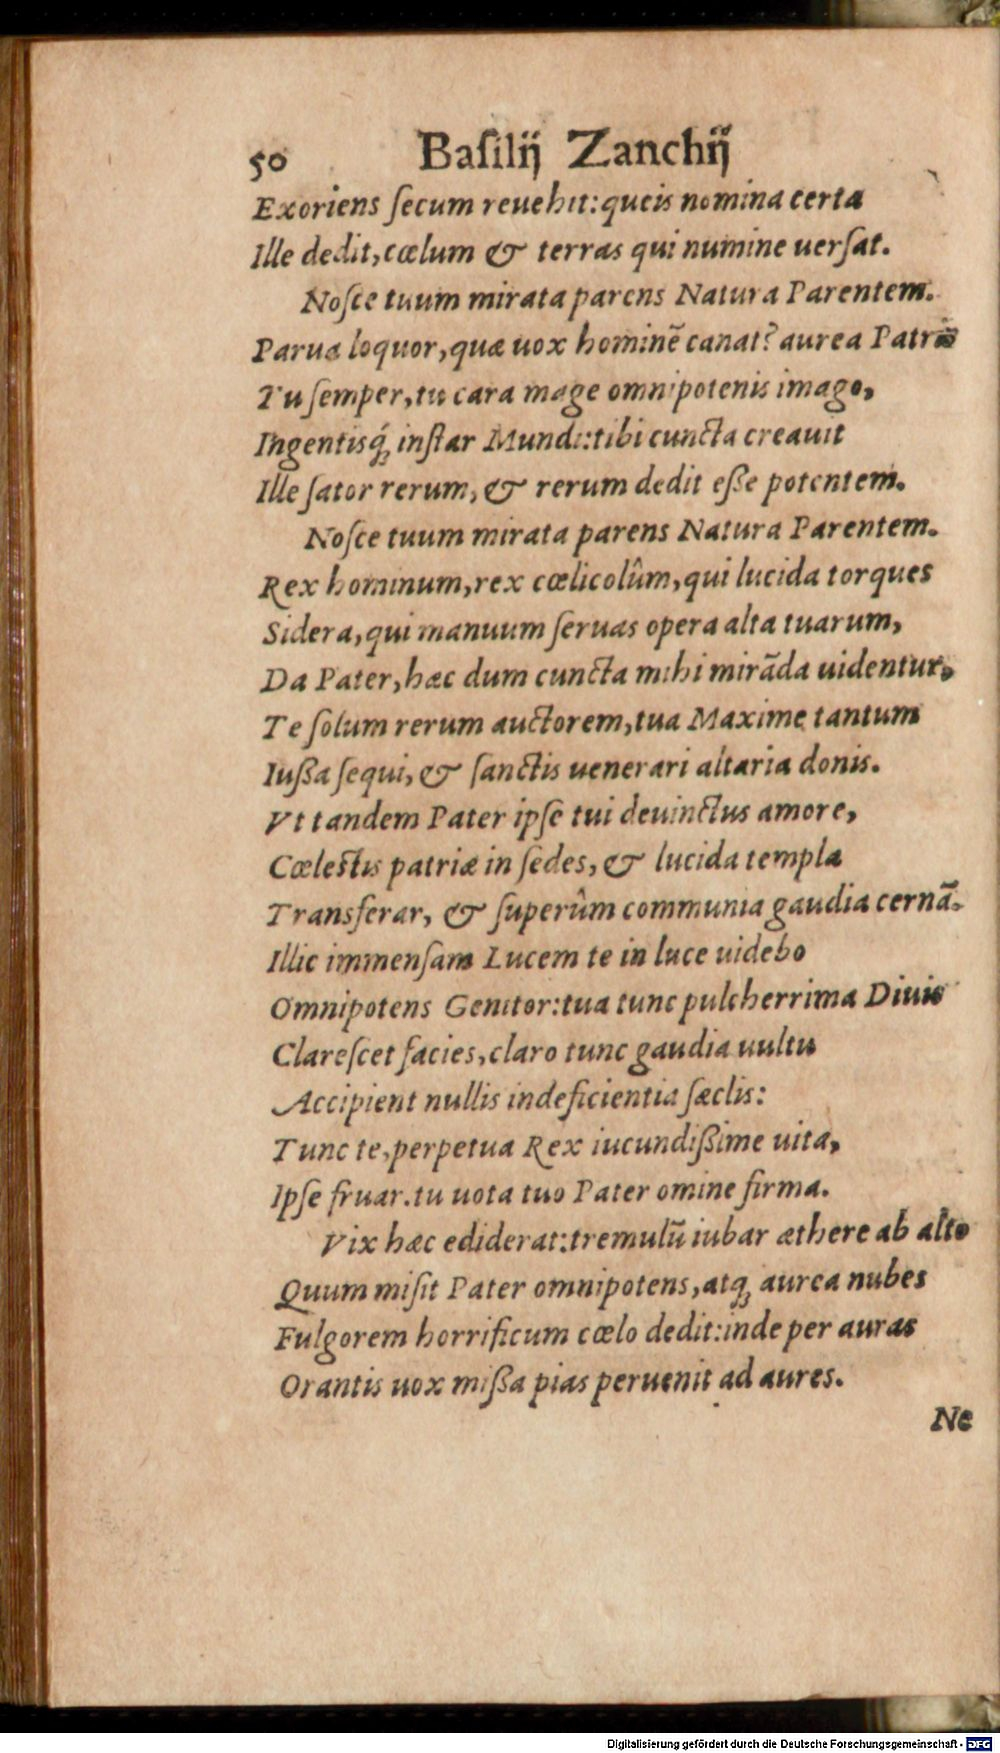 50 Baſilĳ Zanchĳ
Exoriens ſecum reuehit: queis nomina certa
Ille dedit, cœlum & terras qui numine uerſat.
Noſce tuum mirata parens Natura Parentem.
Parua loquor, quæ uox hominẽ canat? aurea Patris
Tu ſemper, tu cara mage omnipotenis imago,
Ingentisq́; inſtar Mundi: tibi cuncta creauit
Ille ſator rerum, & rerum dedit eße potentem.
Noſce tuum mirata parens Natura Parentem.
Rex hominum, rex cœlicolûm, qui lucida torques
Sidera, qui manuum ſeruas opera alta tuarum,
Da Pater, hæc dum cuncta mihi mirãda uidentur,
Te ſolum rerum auctorem, tua Maxime tantum
Iußa ſequi, & ſanctis uenerari altaria donis.
Vt tandem Pater ipſe tui deuinctus amore,
Cœleſtis patriæ in ſedes, & lucida templa
Transferar, & ſuperûm communia gaudia cernã.
Illic immenſam Lucem te in luce uidebo
Omnipotens Genitor: tua tunc pulcherrima Diuis
Clareſcet facies, claro tunc gaudia uultu
Accipient nullis indeficientia ſæclis:
Tunc te, perpetua Rex iucundißime uita,
Ipſe fruar. tu uota tuo Pater omine firma.
Vix hæc ediderat: tremulũ iubar æthere ab alto
Quum miſit Pater omnipotens, atq; aurea nubes
Fulgorem horrificum cœlo dedit: inde per auras
Orantis uox mißa pias peruenit ad aures.
Ne
Digitalisierung gefördert durch die Deutsche Forschungsgemeinschaft - DFG